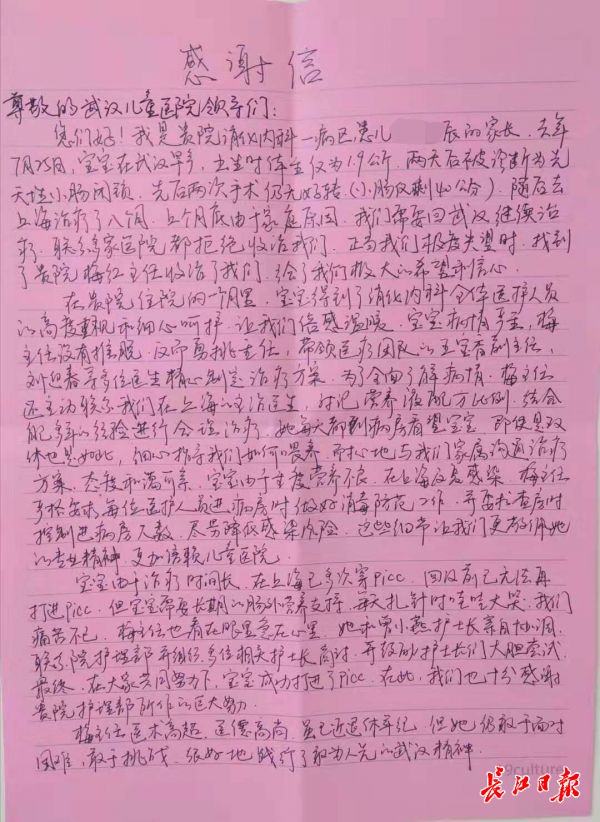 感谢信
尊敬的武汉儿童医院领导们:
您们好!我是贵院消化内科一病区患儿 辰的家长,去年
7月25日,宝宝在武汉早产,出生时体重仅为1.9公斤,两天后被诊断为先
天性小肠闭锁,先后两次手术仍无好转(小肠仅剩40公分),随后去
上海治疗了八个月,上个月底由于家庭原因,我们需要回武汉继续治
疗,联系多家医院都拒绝收治我们,正当我们极度失望时,找到
了贵院梅红主任收治了我们,给了我们极大的希望和信心。
在贵院住院的一个月里,宝宝得到了消化内科全体医护人员
的高度重视和细心呵护,让我们倍感温暖。宝宝病情严重,梅
主任没有推脱,反而勇挑重任,带领医疗团队的 副主任,
刘迎春等多位医生精心制定治疗方案。为了全面了解病情,梅主任
还主动联系我们在上海的主治医生,讨论营养液配方比例,结合
能 的经验进行会诊治疗。她每天都到病房看望宝宝,即使是双
休也是如此,细心指导我们如何喂养,耐心地与我们家属沟通治疗
方案,态度和蔼可亲,宝宝由于重度营养不良,在上海反复感染,梅主任
严格要求每位医护人员进病房时做好消毒防范工作,并要求查房时
控制进病房人数,尽量降低感染风险,这些细节让我们更敬佩她
的专业精神,更加信赖儿童医院。
宝宝由于治疗时间长,在上海已多次穿Picc,回汉前已无法再
打进Picc,但宝宝需要长期的肠外营养支持,每天扎针时哇哇大哭,我们
痛苦不已,梅主任也看在眼里急在心里,她和曾小燕护士长亲自协调,
联系院护理部并组织多位相关护士长商讨,并鼓励护士们大胆尝试,
最终,在大家共同努力下,宝宝成功打进了Picc。在此,我们也十分感谢
贵院护理部所作的巨大努力。
梅主任医术高超,医德高尚,虽已近退休年纪,但她仍敢于面对
困难,敢于挑战,很好地践行了敢为人先的武汉精神。
9culture
长江日报